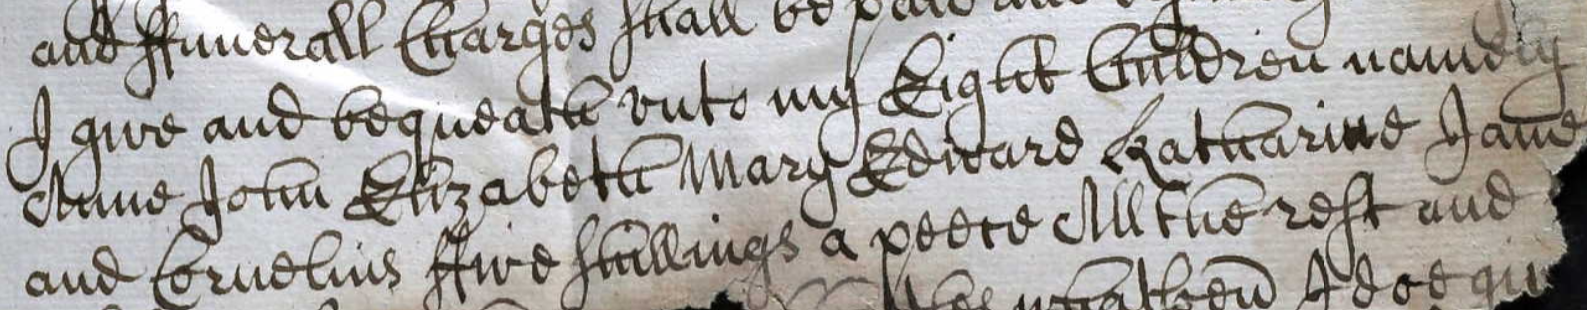 and ffunerall Charges shall be paid and
I give and bequeath unto my Eight Children namely
Anne John Elizabeth Mary Edward Katharine Jane
and Cornelius ffive shillings a peece All the rest and
whatsoever I doe giv